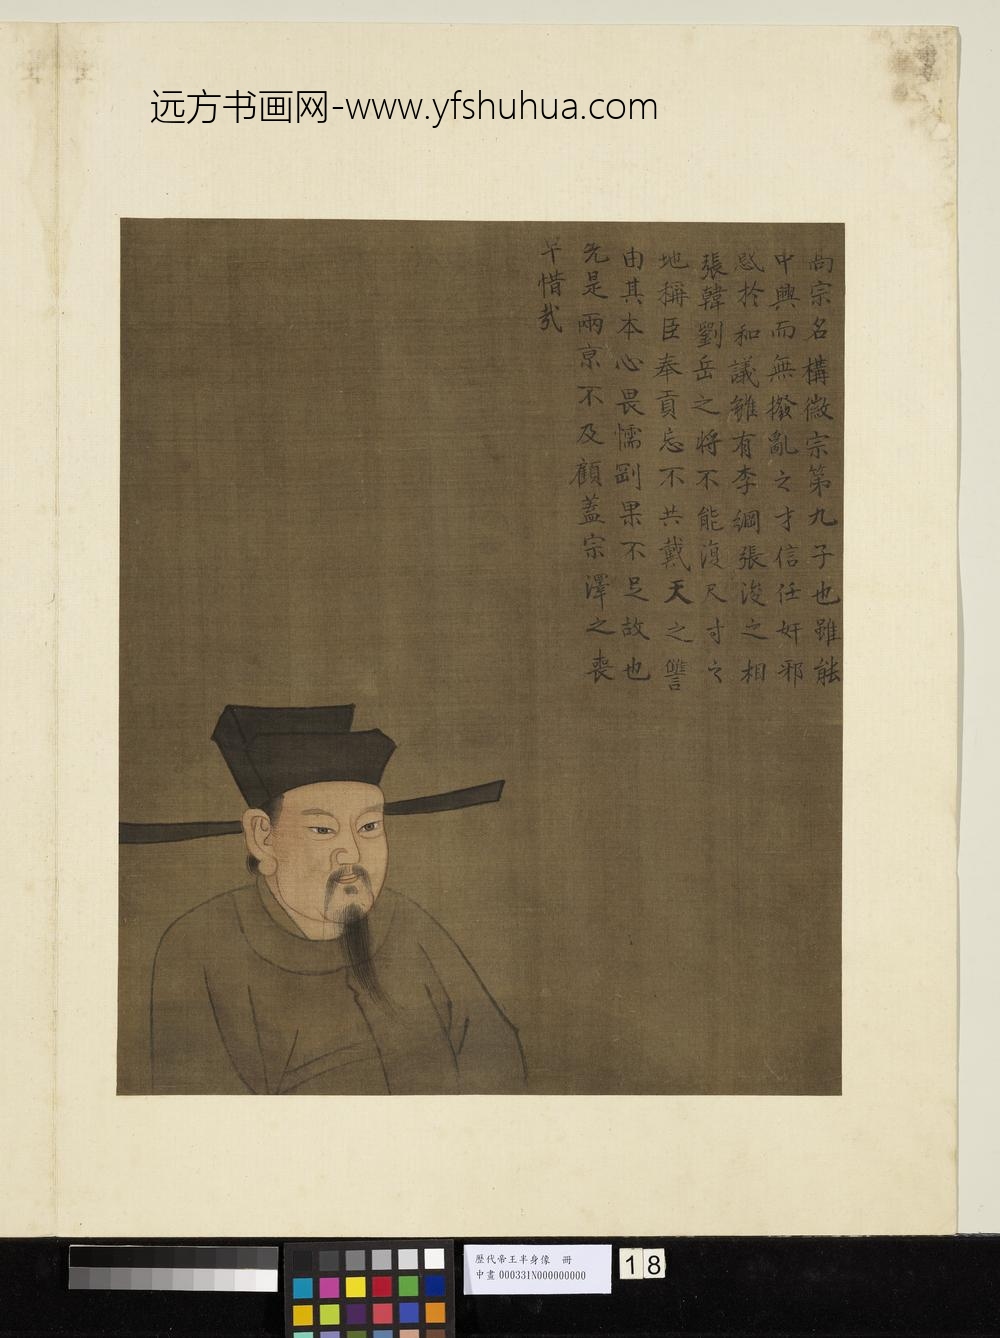 远方书画网-www.yfshuhua.com
高宗名構徽宗第九子也雖能
中興而無撥亂之才信任奸邪
惑於和議雖有李綱張浚之相
張韓劉岳之將不能復尺寸之
地稱臣奉貢忘不共戴天之讐
由其本心畏懦剛果不足故也
先是兩京不及顧蓋宗澤之喪
乎惜哉
歷代帝王半身像　冊
中畫 000331N000000000
18